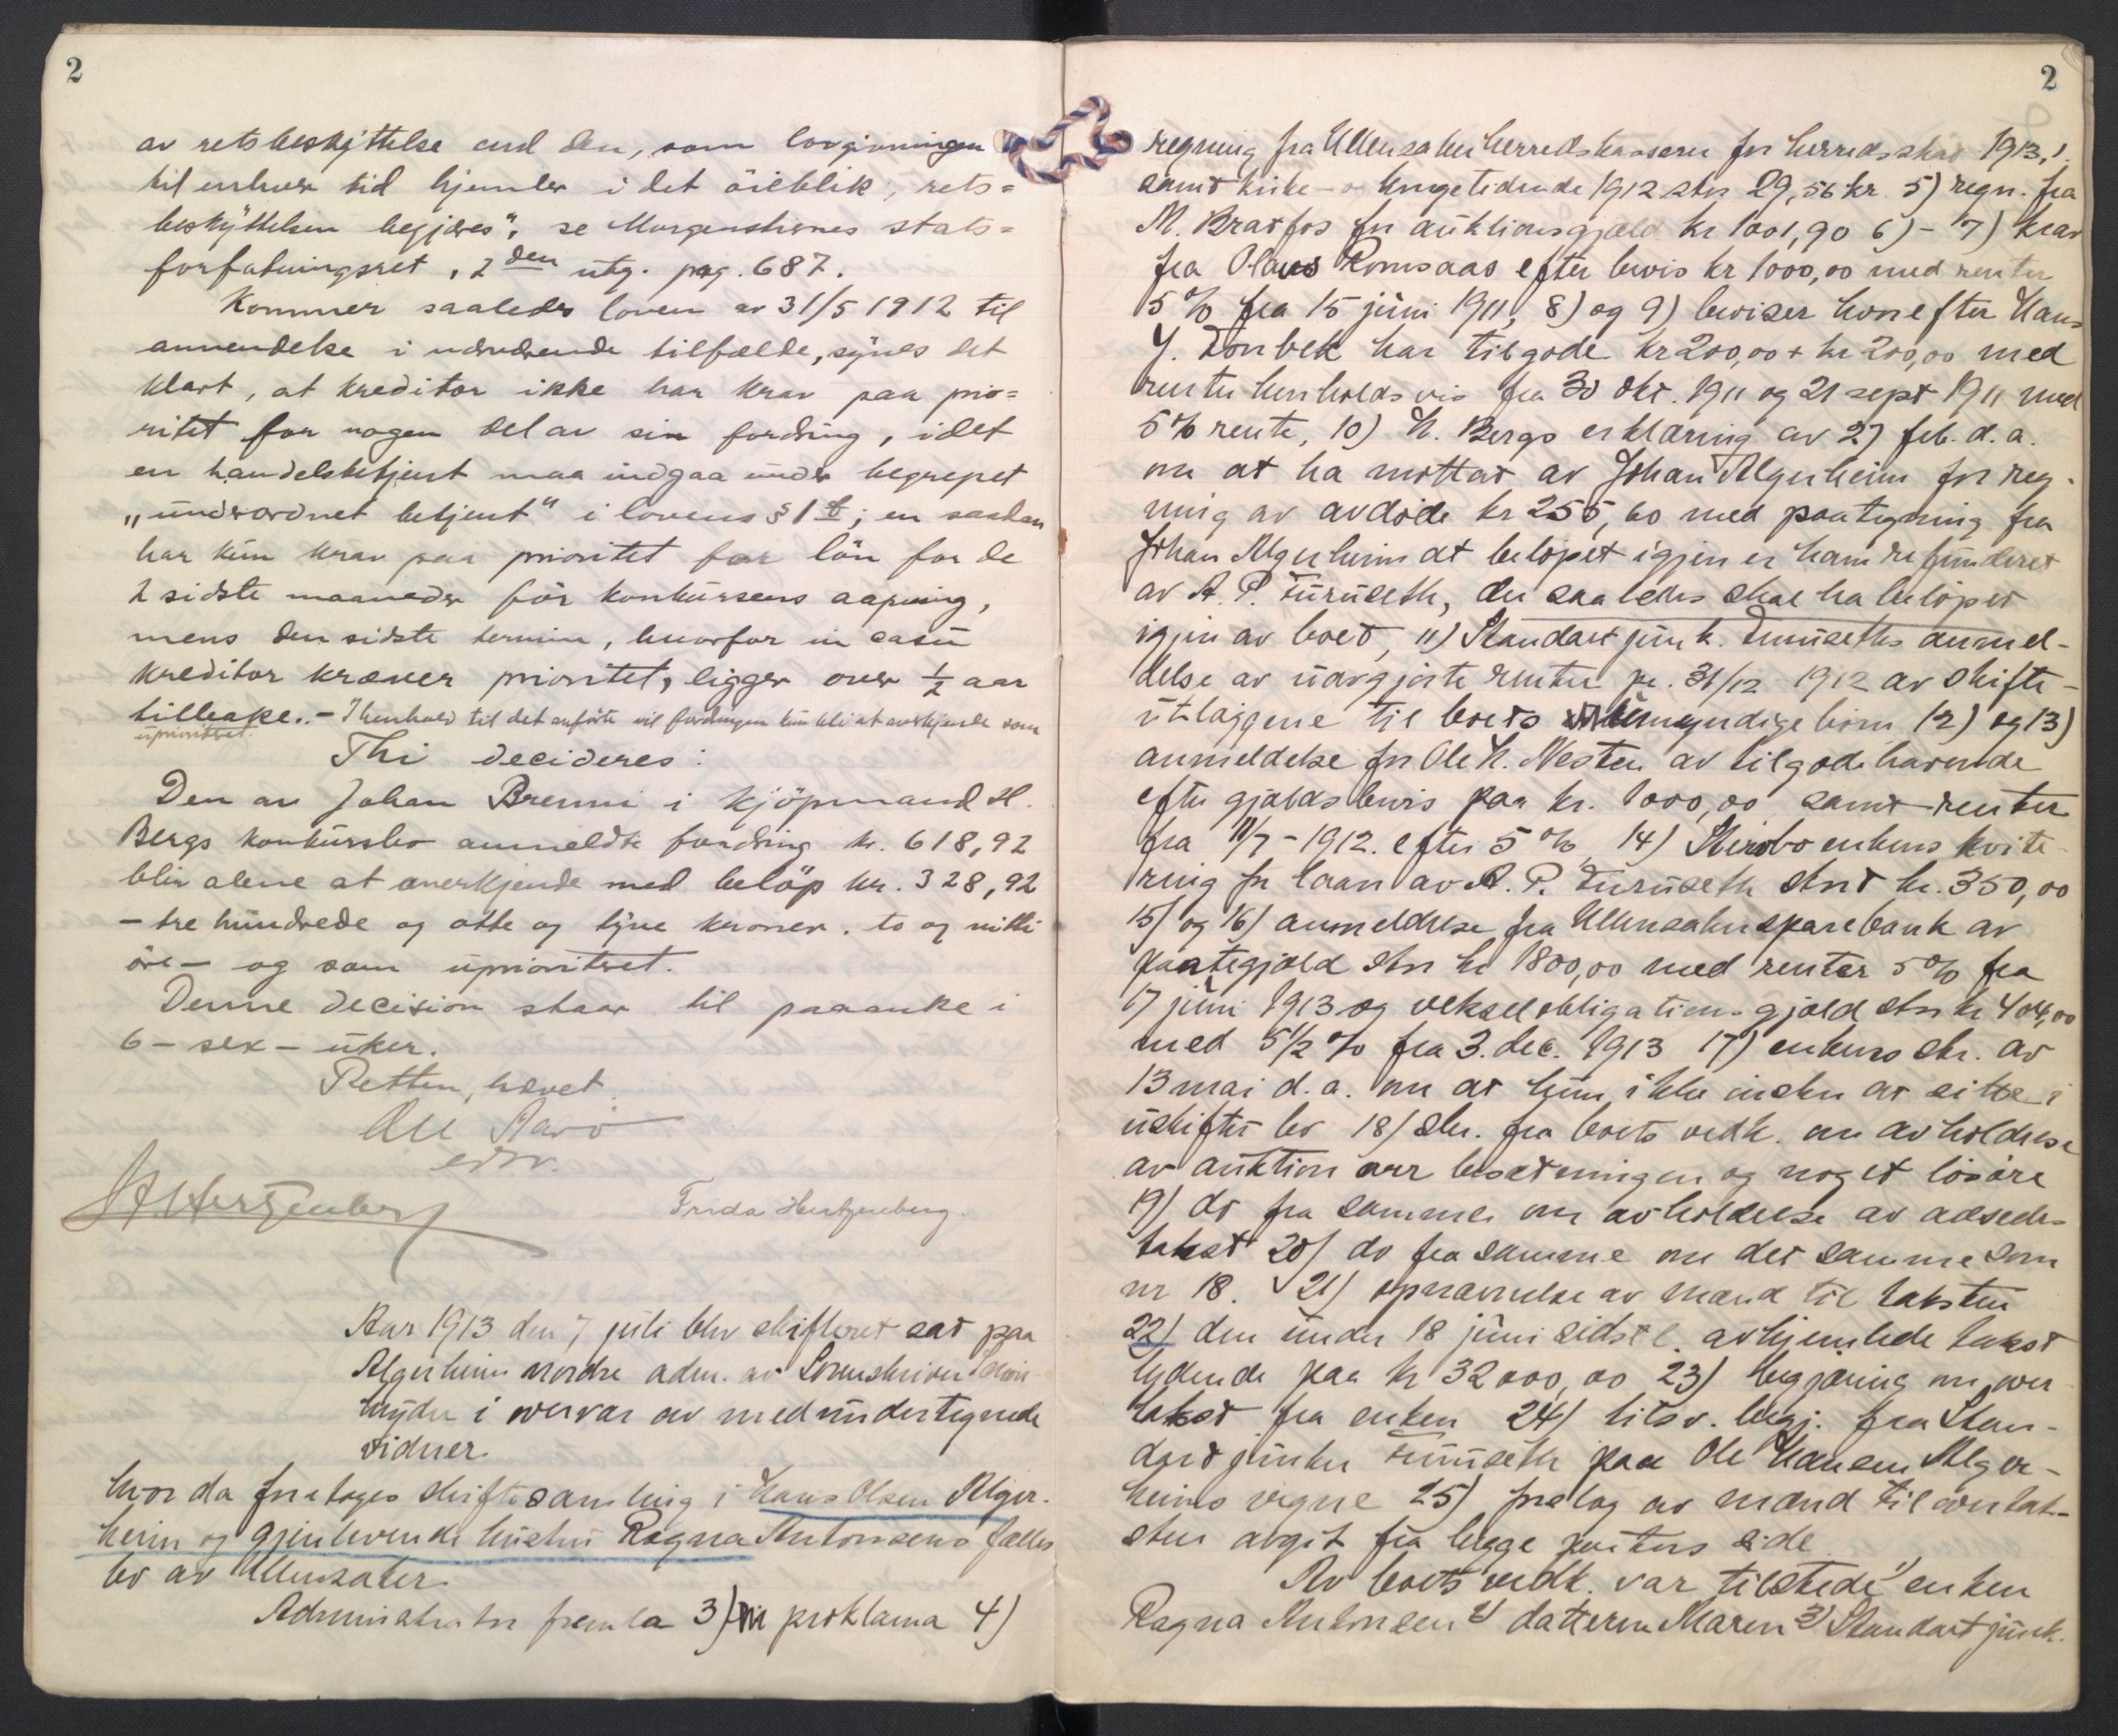 2
av retsbeskyttelse end den, som lovgivningen
til enhver tid hjemler i det öieblik, rets=
beskyttelsen begjæres", se Morgenstiernes stats=
forfatningsret, 2den utg. pag. 687.
Kommer saaledes loven av 31/5 1912 til
anvendelse i nærværende tilfælde, synes det
klart, at kreditor ikke har krav paa prio=
ritet for nogen del av sin fordring, idet
en handelsbetjent maa indgaa under begrepet
"underordnet betjent" i lovens § 1; en saadan
har kun krav paa prioritet for lön for de
2 sidste maaneder för konkursens aapning,
mens den sidste termin, hvorfor in casu
kreditor kræver prioritet, ligger over ½ aar
tilbake. - I henhold til det anförte vil fordringen kun bli at anerkjende som
uprioritert.
Thi decideres:
Den av Johan Brenni i kjöpmand H.
Bergs konkursbo anmeldte fordring kr. 618,92
blir alene at anerkjende med beløp kr. 328,92
- tre hundrede og otte og tyve kroner, to og nitti
öre - og som uprioritert.
Denne decision staar til paaanke i
6 - sex - uker.
Retten hævet.
Ole Rarö
edsv.
H. Hertzenberg
Frida Hertzenberg.
Aar 1913 den 7 juli blev skifteret sat paa
Algerheim nordre adm. av Sorenskriver Edvin
Mýdre i overvær av medundertegnede
vidner
hvor da foretoges skiftesamling i Hans Olsen Alger-
heim og gjenlevende hustru Ragna Antonsens fælles
bo av Ullensaker.
Administrator fremla 3) proklama 4)
2
regning fra Ullensaker herredskasserer for herredsskat 1913,1.
samt kirke- og tiende 1912 stor 29,56 kr. 5) regn. fra
M. Bratfos for auktionsgjæld kr 1001,90 6) - 7) krav
fra Olaus Romsaas efter bevis kr 1000,00 med renter
5% fra 15 juni 1911, 8) og 9) beviser hvorefter Hans
Y. Tonbek har tilgode kr 200,00 + kr 200,00 med
renter henholdsvis fra 30 okt. 1911 og 21 sept 1911 med
5% rente, 10) H. Bergs erklæring av 27 feb. d.a.
om at ha mottat av Johan Algerheim for reg-
ning av avdöde kr 255,60 med paategning fra
Johan Algerheim at belöpet igjen er ham refunderet
av A. P. Furuseth, der saaledes skal ha belöpet
igjen av boet, 11) Standart junk. Furuseths anmel-
delse av uavgjorte renter pr. 31/12 1912 av skifte-
utlæggene til boets umyndige börn 12) og 13)
anmeldelse fra Ole H. Nesten av tilgodehavende
efter gjældsbevis paa kr. 1000,00 samt renter
fra 11/7 - 1912. efter 5%, 14) Sterbo enkens kvite-
ring for laan av A. P. Furuseth stort kr. 350,00
15) og 16) anmeldelse fra Ullensaker sparebank av
pantegjæld stor kr 1800,00 med renter 5% fra
17 juni 1913 og vekselobligationsgjæld stor kr 404,00
med 5½% fra 3. dec. 1913 17) enkens skr. av
13 mai d.a. om at hun ikke önsker at sitte i
uskiftet bo 18) skr. fra boets vedk. om avholdelse
av auktion over besætningen og noget lösöre
19) do fra samme om avholdelse av aasædes-
takst 20) do fra samme om det samme som
nr 18. 21) opnævnelse av mænd til taksten
22) den under 18 juni sidstl. avhjemlede takst
lydende paa kr 32000,00 23) begjæring om over-
takst fra enken 24) tilsv. begj. fra Stan-
dart junker Furuseth paa Ole Hansen Alger-
heims vegne 25) forslag av mænd til overtak-
sten avgit fra begge parters side.
Av boets vedk. var tilstede 1) enken
Ragna Antonsen 2) datteren Maren 3) Standart junk.